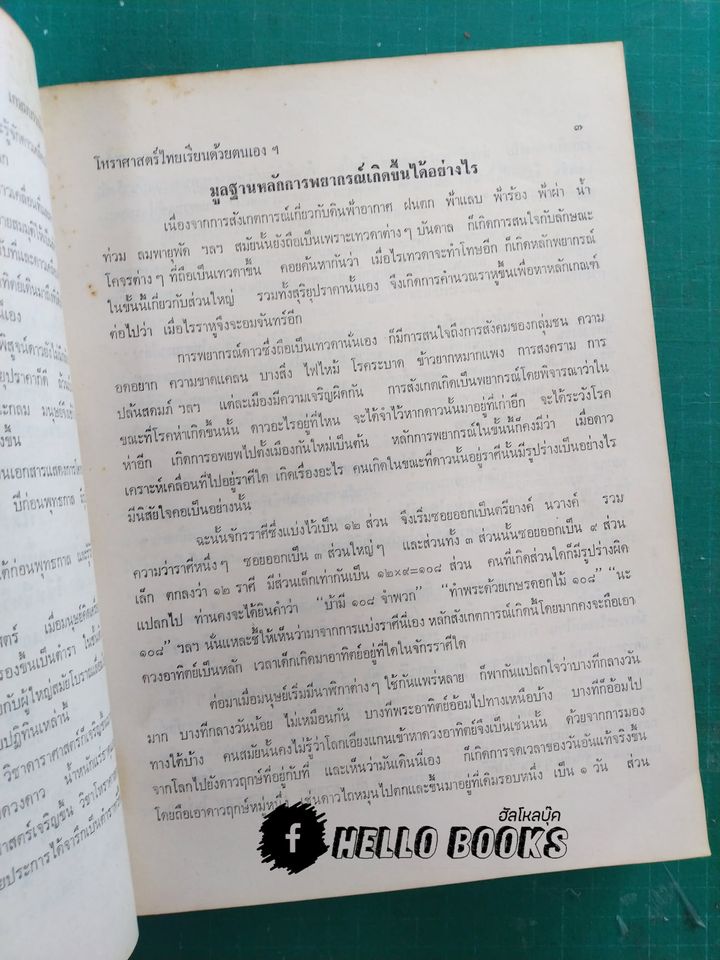 ๓
โหราศาสตร์ไทยเรียนด้วยตนเอง ฯ
มูลฐานหลักการพยากรณ์เกิดขึ้นได้อย่างไร
เนื่องจากการสังเกตการณ์เกี่ยวกับดินฟ้าอากาศ ฝนตก ฟ้าแลบ ฟ้าร้อง ฟ้าผ่า น้ำ
ท่วม ลมพายุพัด ฯลฯ สมัยนั้นยังถือเป็นเพราะเทวดาต่างๆ บันดาล ก็เกิดการสนใจกับลักษณะ
โคจรต่างๆ ที่ถือเป็นเทวดาขึ้น คอยค้นหากันว่า เมื่อไรเทวดาจะทำโทษอีก ก็เกิดหลักพยากรณ์
ในขั้นนี้เกี่ยวกับส่วนใหญ่ รวมทั้งสุริยุปราคานั้นเอง จึงเกิดการคำนวณราหูขึ้นเพื่อหาหลักเกณฑ์
ต่อไปว่า เมื่อไรราหูจึงจะอมจันทร์อีก
การพยากรณ์ดาวซึ่งถือเป็นเทวดานั่นเอง ก็มีการสนใจถึงการสังคมของกลุ่มชน ความ
อดอยาก ความขาดแคลน บางสิ่ง ไฟไหม้ โรคระบาด ข้าวยากหมากแพง การสงคราม การ
ปล้นสดมภ์ ฯลฯ แต่ละเมืองมีความเจริญผิดกัน การสังเกตเกิดเป็นพยากรณ์โดยพิจารณาว่าใน
ขณะที่โรคห่าเกิดขึ้นนั้น ดาวอะไรอยู่ที่ไหน จะได้จำไว้หากดาวนั้นมาอยู่ที่เก่าอีก จะได้ระวังโรค
ห่าอีก เกิดการอพยพไปตั้งเมืองกันใหม่เป็นต้น หลักการพยากรณ์ในขั้นนี้ก็คงมีว่า เมื่อดาว
เคราะห์เคลื่อนที่ไปอยู่ราศีใด เกิดเรื่องอะไร คนเกิดในขณะที่ดาวนั้นอยู่ราศีนั้นมีรูปร่างเป็นอย่างไร
มีนิสัยใจคอเป็นอย่างนั้น
ฉะนั้นจักรราศีซึ่งแบ่งไว้เป็น ๑๒ ส่วน จึงเริ่มซอยออกเป็นตรียางค์ นวางค์ รวม
ความว่าราศีหนึ่งๆ ซอยออกเป็น ๓ ส่วนใหญ่ๆ และส่วนทั้ง ๓ ส่วนนั้นซอยออกเป็น ๙ ส่วน
เล็ก ตกลงว่า ๑๒ ราศี มีส่วนเล็กเท่ากันเป็น ๑๒×๙=๑๐๘ ส่วน คนที่เกิดส่วนใดก็มีรูปร่างผิด
แปลกไป ท่านคงจะได้ยินคำว่า “บ้ามี ๑๐๘ จำพวก” “ทำพระด้วยเกษรดอกไม้ ๑๐๘” “นะ
๑๐๘” ฯลฯ นั่นแหละชี้ให้เห็นว่ามาจากการแบ่งราศีนี่เอง หลักสังเกตการณ์เกิดนี้โดยมากคงจะถือเอา
ดวงอาทิตย์เป็นหลัก เวลาเด็กเกิดมาอาทิตย์อยู่ที่ใดในจักรราศีใด
ต่อมาเมื่อมนุษย์เริ่มมีนาฬิกาต่างๆ ใช้กันแพร่หลาย ก็พากันแปลกใจว่าบางทีกลางวัน
มาก บางทีกลางวันน้อย ไม่เหมือนกัน บางทีพระอาทิตย์อ้อมไปทางเหนือบ้าง บางทีก็อ้อมไป
ทางใต้บ้าง คนสมัยนั้นคงไม่รู้ว่าโลกเอียงแกนเข้าหาดวงอาทิตย์จึงเป็นเช่นนั้น ด้วยจากการมอง
จากโลกไปยังดาวฤกษ์ที่อยู่กับที่ และเห็นว่ามันเดินนี่เอง ก็เกิดการจดเวลาของวันอันแท้จริงขึ้น
โดยถือเอาดาวฤกษ์หมู่หนึ่ง เช่นดาวไถหมุนไปตกและขึ้นมาอยู่ที่เดิมรอบหนึ่ง เป็น ๑ วัน ส่วน
ฮัลโหลบุ๊ค
f HELLO BOOKS